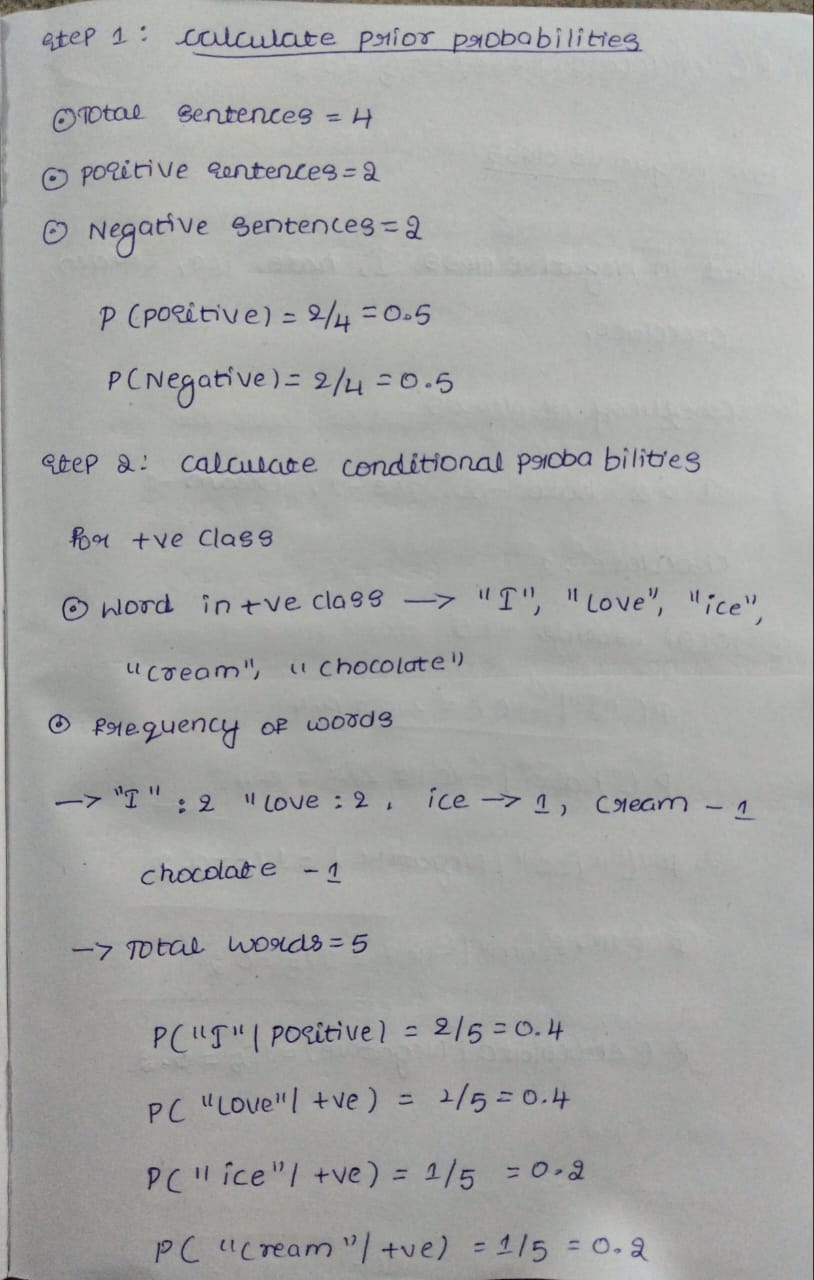 Step 1: calculate prior probabilities
⊙ Total sentences = 4
⊙ positive sentences = 2
⊙ Negative sentences = 2
P (positive) = 2/4 = 0.5
P(Negative) = 2/4 = 0.5
Step 2: calculate conditional probabilities
For +ve class
⊙ word in +ve class → "I", "Love", "ice",
"cream", "chocolate"
⊙ frequency of words
→ "I" : 2 "Love : 2, ice → 1, cream - 1
chocolate - 1
→ Total words = 5
P("I" | positive) = 2/5 = 0.4
P( "Love" | +ve ) = 2/5 = 0.4
P(" ice" | +ve) = 1/5 = 0.2
P( "cream" | +ve) = 1/5 = 0.2